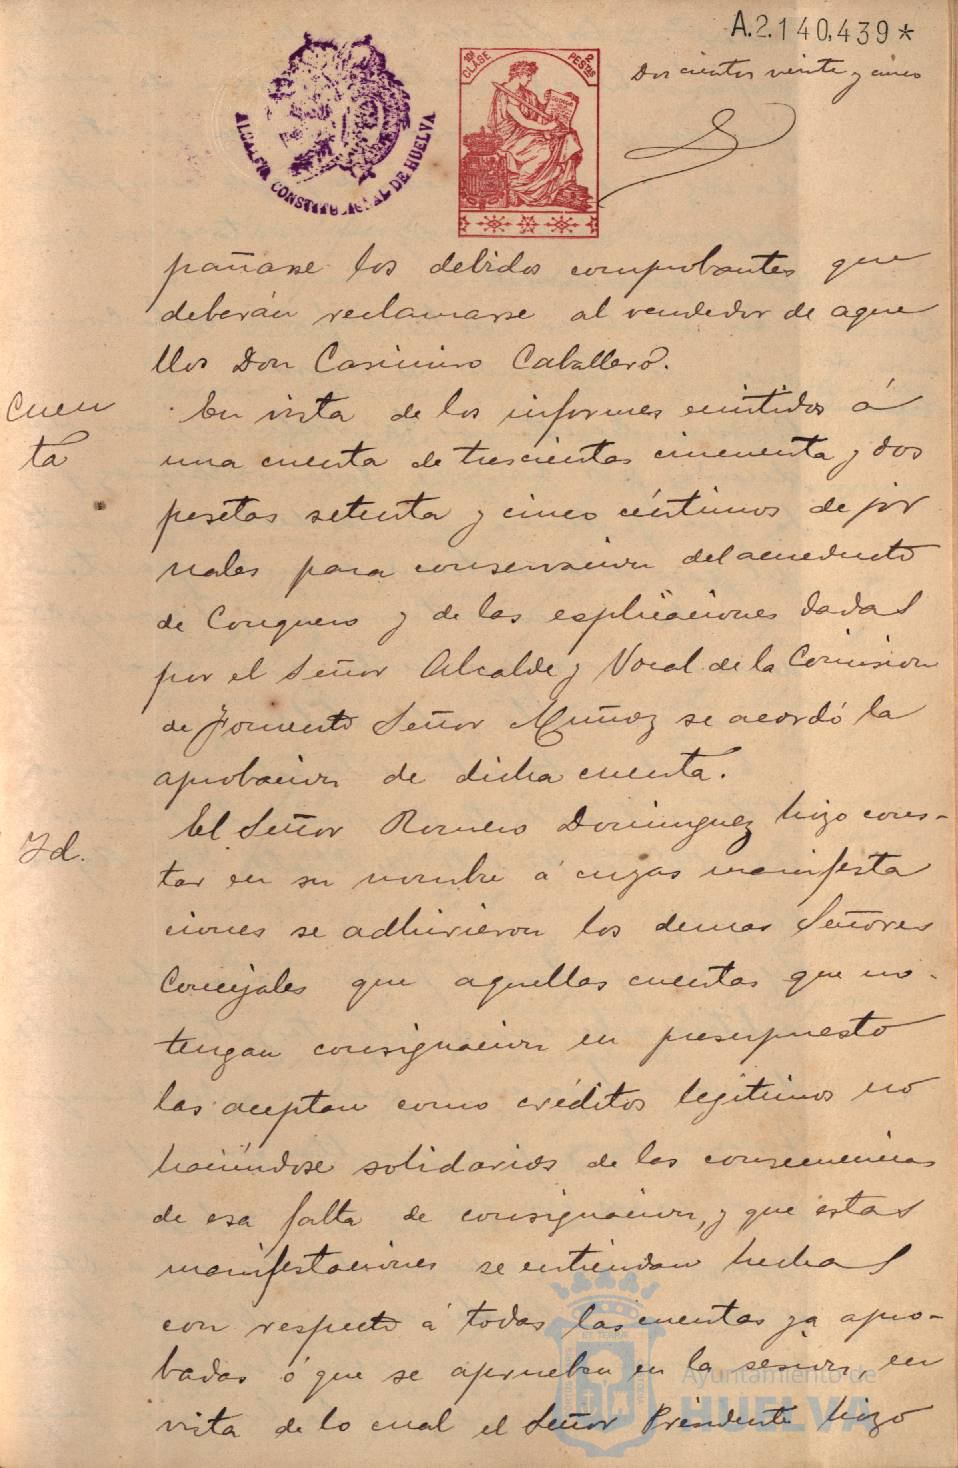 A.2.140,439*
Doscientos veinte y cinco
ALCALDIA CONSTITUCIONAL DE HUELVA
10ª CLASE
2 PESTAS
pañarse los debidos comprobantes que
deberán reclamarse al vendedor de aque
llos Don Casimiro Caballero.
Cuen
ta
En vista de los informes emitidos á
una cuenta de trescientas cincuenta y dos
pesetas setenta y cinco céntimos de jor
nales para conservacion del acueducto
de Conquero y de las esplicaciones dadas
por el Señor Alcalde y Vocal de la Comision
de Fomento Señor Muñoz se acordó la
aprobacion de dicha cuenta.
Id.
El Señor Romero Dominguez hizo cons-
tar en su nombre á cuyas manifesta
ciones se adhirieron los demas Señores
Concejales que aquellas cuentas que no
tengan consignacion en presupuesto
las aceptan como créditos legitimos no
haciéndose solidarios de las consecuencias
de esa falta de consignacion, y que estas
manifestaciones se entiendan hechas
con respecto á todas las cuentas ya apro-
badas ó que se aprueben en la sesion, en
vista de lo cual el Señor Presidente hizo
Ayuntamiento de
HUELVA